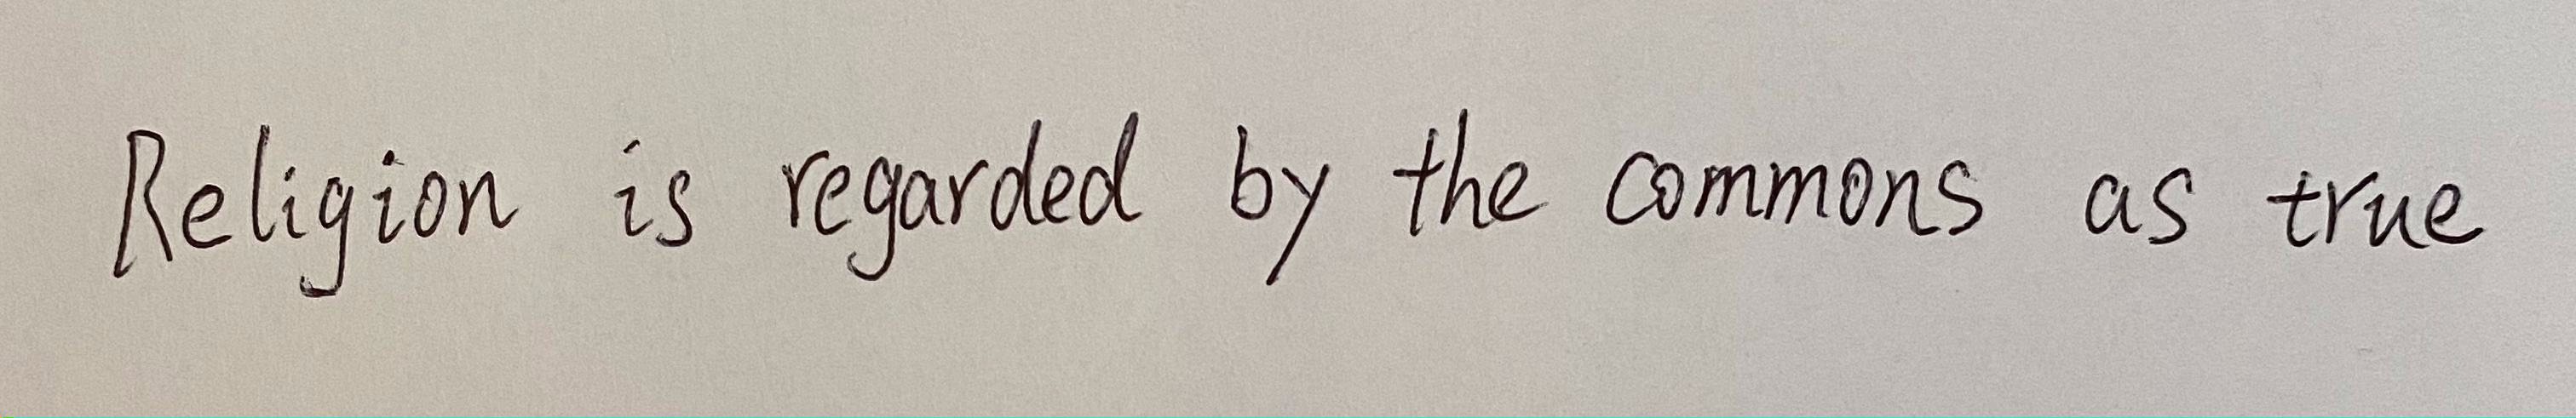 Religion is regarded by the commons as true